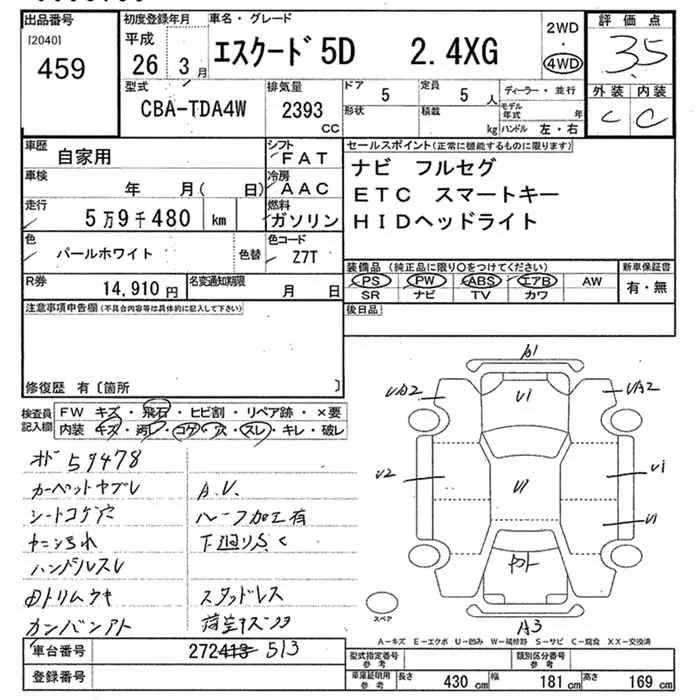 出品番号
[2040]
459
初度登録年月
平成
26 3月
車名・グレード
エスクード 5D 2.4XG
2WD
・
4WD
評価点
3.5
外装 内装
C C
型式
CBA-TDA4W
排気量
2393
cc
ドア
5
定員
5人
形状
積載
kg
ディーラー・並行
モデル年式 年
ハンドル 左・右
車歴
自家用
シフト
FAT
車検
年 月( 日)
冷房
AAC
走行
5万9千480 km
燃料
ガソリン
色
パールホワイト
色替
色コード
Z7T
セールスポイント(正常に機能するものに限ります)
ナビ フルセグ
ETC スマートキー
HIDヘッドライト
R券
14,910 円
名変通知期限
月 日
装備品 (純正品に限り○をつけてください)
PS PW ABS エアB AW
SR ナビ TV カワ
新車保証書
有・無
注意事項申告欄(不具合内容等は具体的に記入して下さい)
後日品
修復歴 有〔箇所 〕
検査員
記入欄
FW キズ・飛石・ヒビ割・リペア跡・×要
内装 キズ・汚レ・コゲ・穴・スレ・キレ・破レ
オド 59478
カーペットヤブレ
A.V.
シートコゲ穴
ルーフ加工有
ヤニ汚れ
下廻りさく
ハンドルスレ
内トリムウキ
スタッドレス
カンバンアト
車台番号
272413 513
登録番号
A1
U1
UA2
UA2
U2
U1
U1
U1
U1
ヤト
A3
スペア
A-キズ E-エクボ U-凹み W-補修跡 S-サビ C-腐食 XX-交換済
型式指定番号
参考
類別区分番号
参考
車庫証明用
参考
長さ
430 cm
幅
181 cm
高さ
169 cm